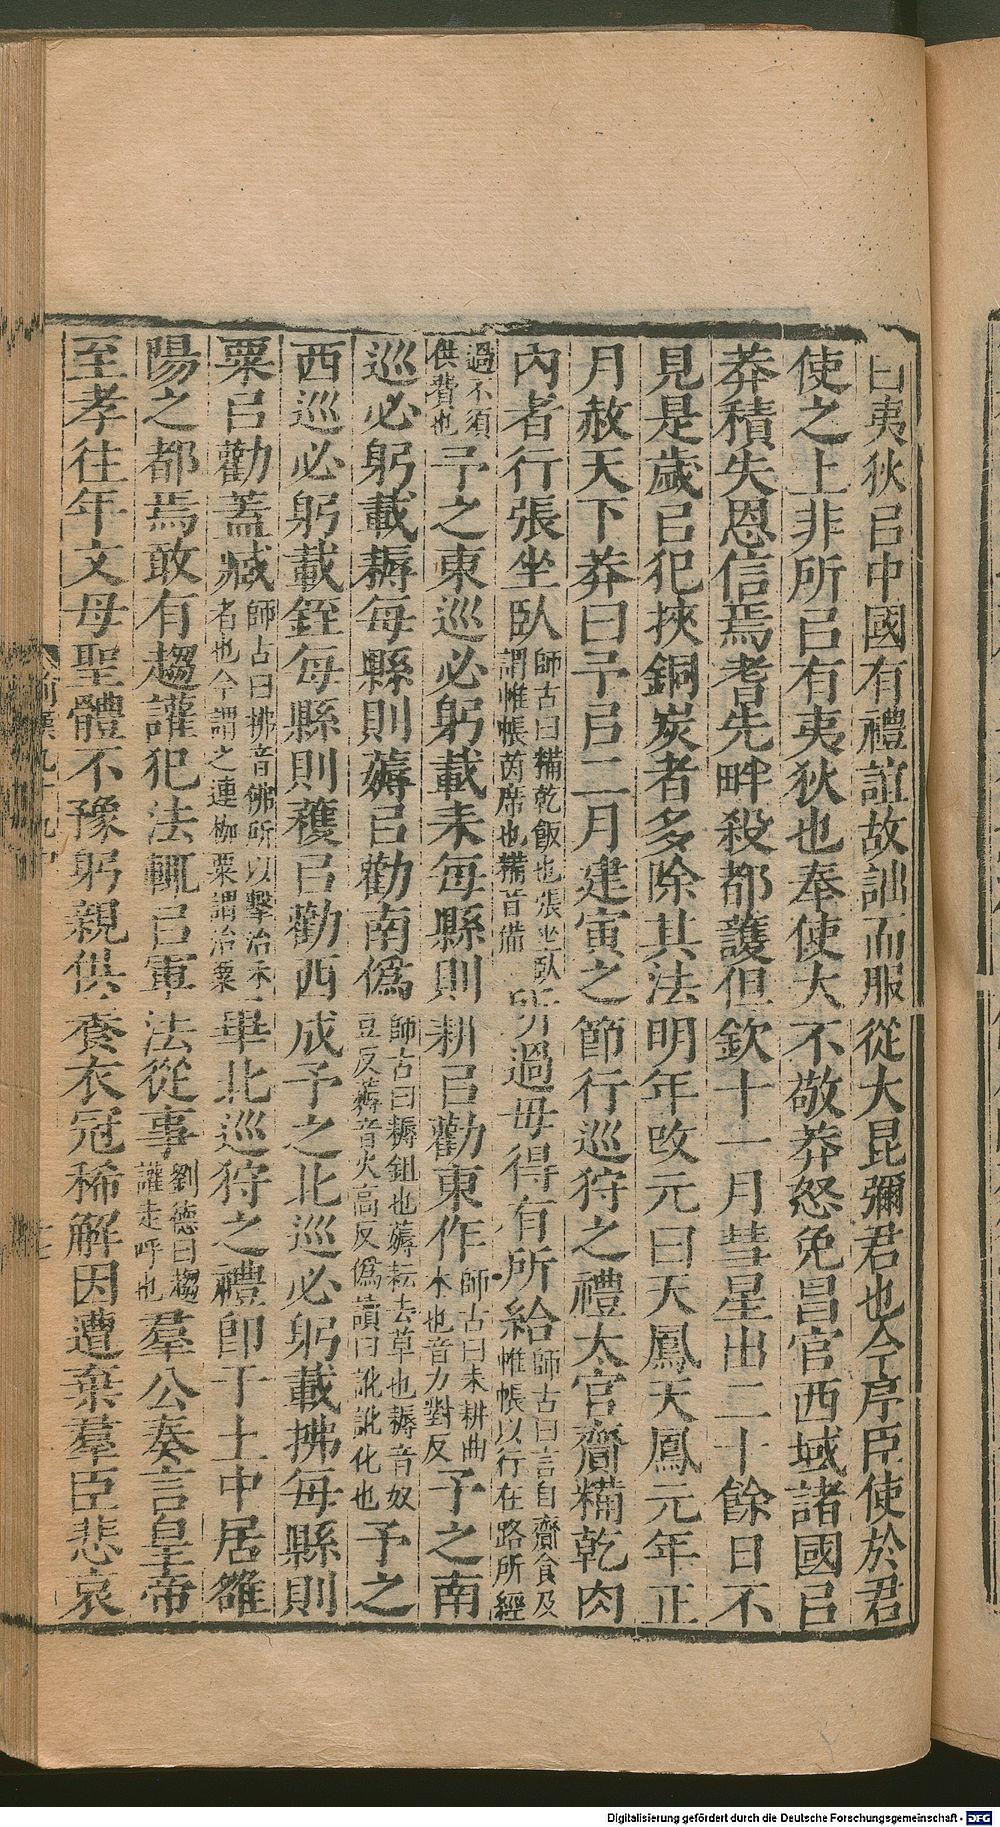 曰夷狄㠯中國有禮誼故詘而服從大昆彌君也今序臣使於君
使之上非所㠯有夷狄也奉使大不敬莽怒免昌官西域諸國㠯
莽積失恩信焉耆先畔殺都護但欽十一月彗星出二十餘日不
見是歲㠯犯挾銅炭者多除其法明年改元曰天鳳天鳳元年正
月赦天下莽曰予㠯二月建寅之節行巡狩之禮太官齎糒乾肉
內者行張坐臥師古曰糒乾飯也張坐臥謂帷帳茵席也糒音備所過毋得有所給師古曰言自齎食及帷帳以行在路所經
過不須供費也予之東巡必躬載耒每縣則耕㠯勸東作師古曰耒耕曲木也音力對反予之南
巡必躬載耨每縣則薅㠯勸南偽師古曰耨鉏也薅耘去草也耨音奴豆反薅音火高反偽讀曰訛訛化也予之
西巡必躬載銍每縣則穫㠯勸西成予之北巡必躬載拂每縣則
粟㠯勸蓋臧師古曰拂音佛所以擊治禾者也今謂之連枷粟謂治粟畢北巡狩之禮即于土中居雒
陽之都焉敢有趨讙犯法輒㠯軍法從事劉德曰趨讙走呼也羣公奏言皇帝
至孝往年文母聖體不豫躬親供養衣冠稀解因遭棄羣臣悲哀
前漢九十九中
Digitalisierung gefördert durch die Deutsche Forschungsgemeinschaft - DFG